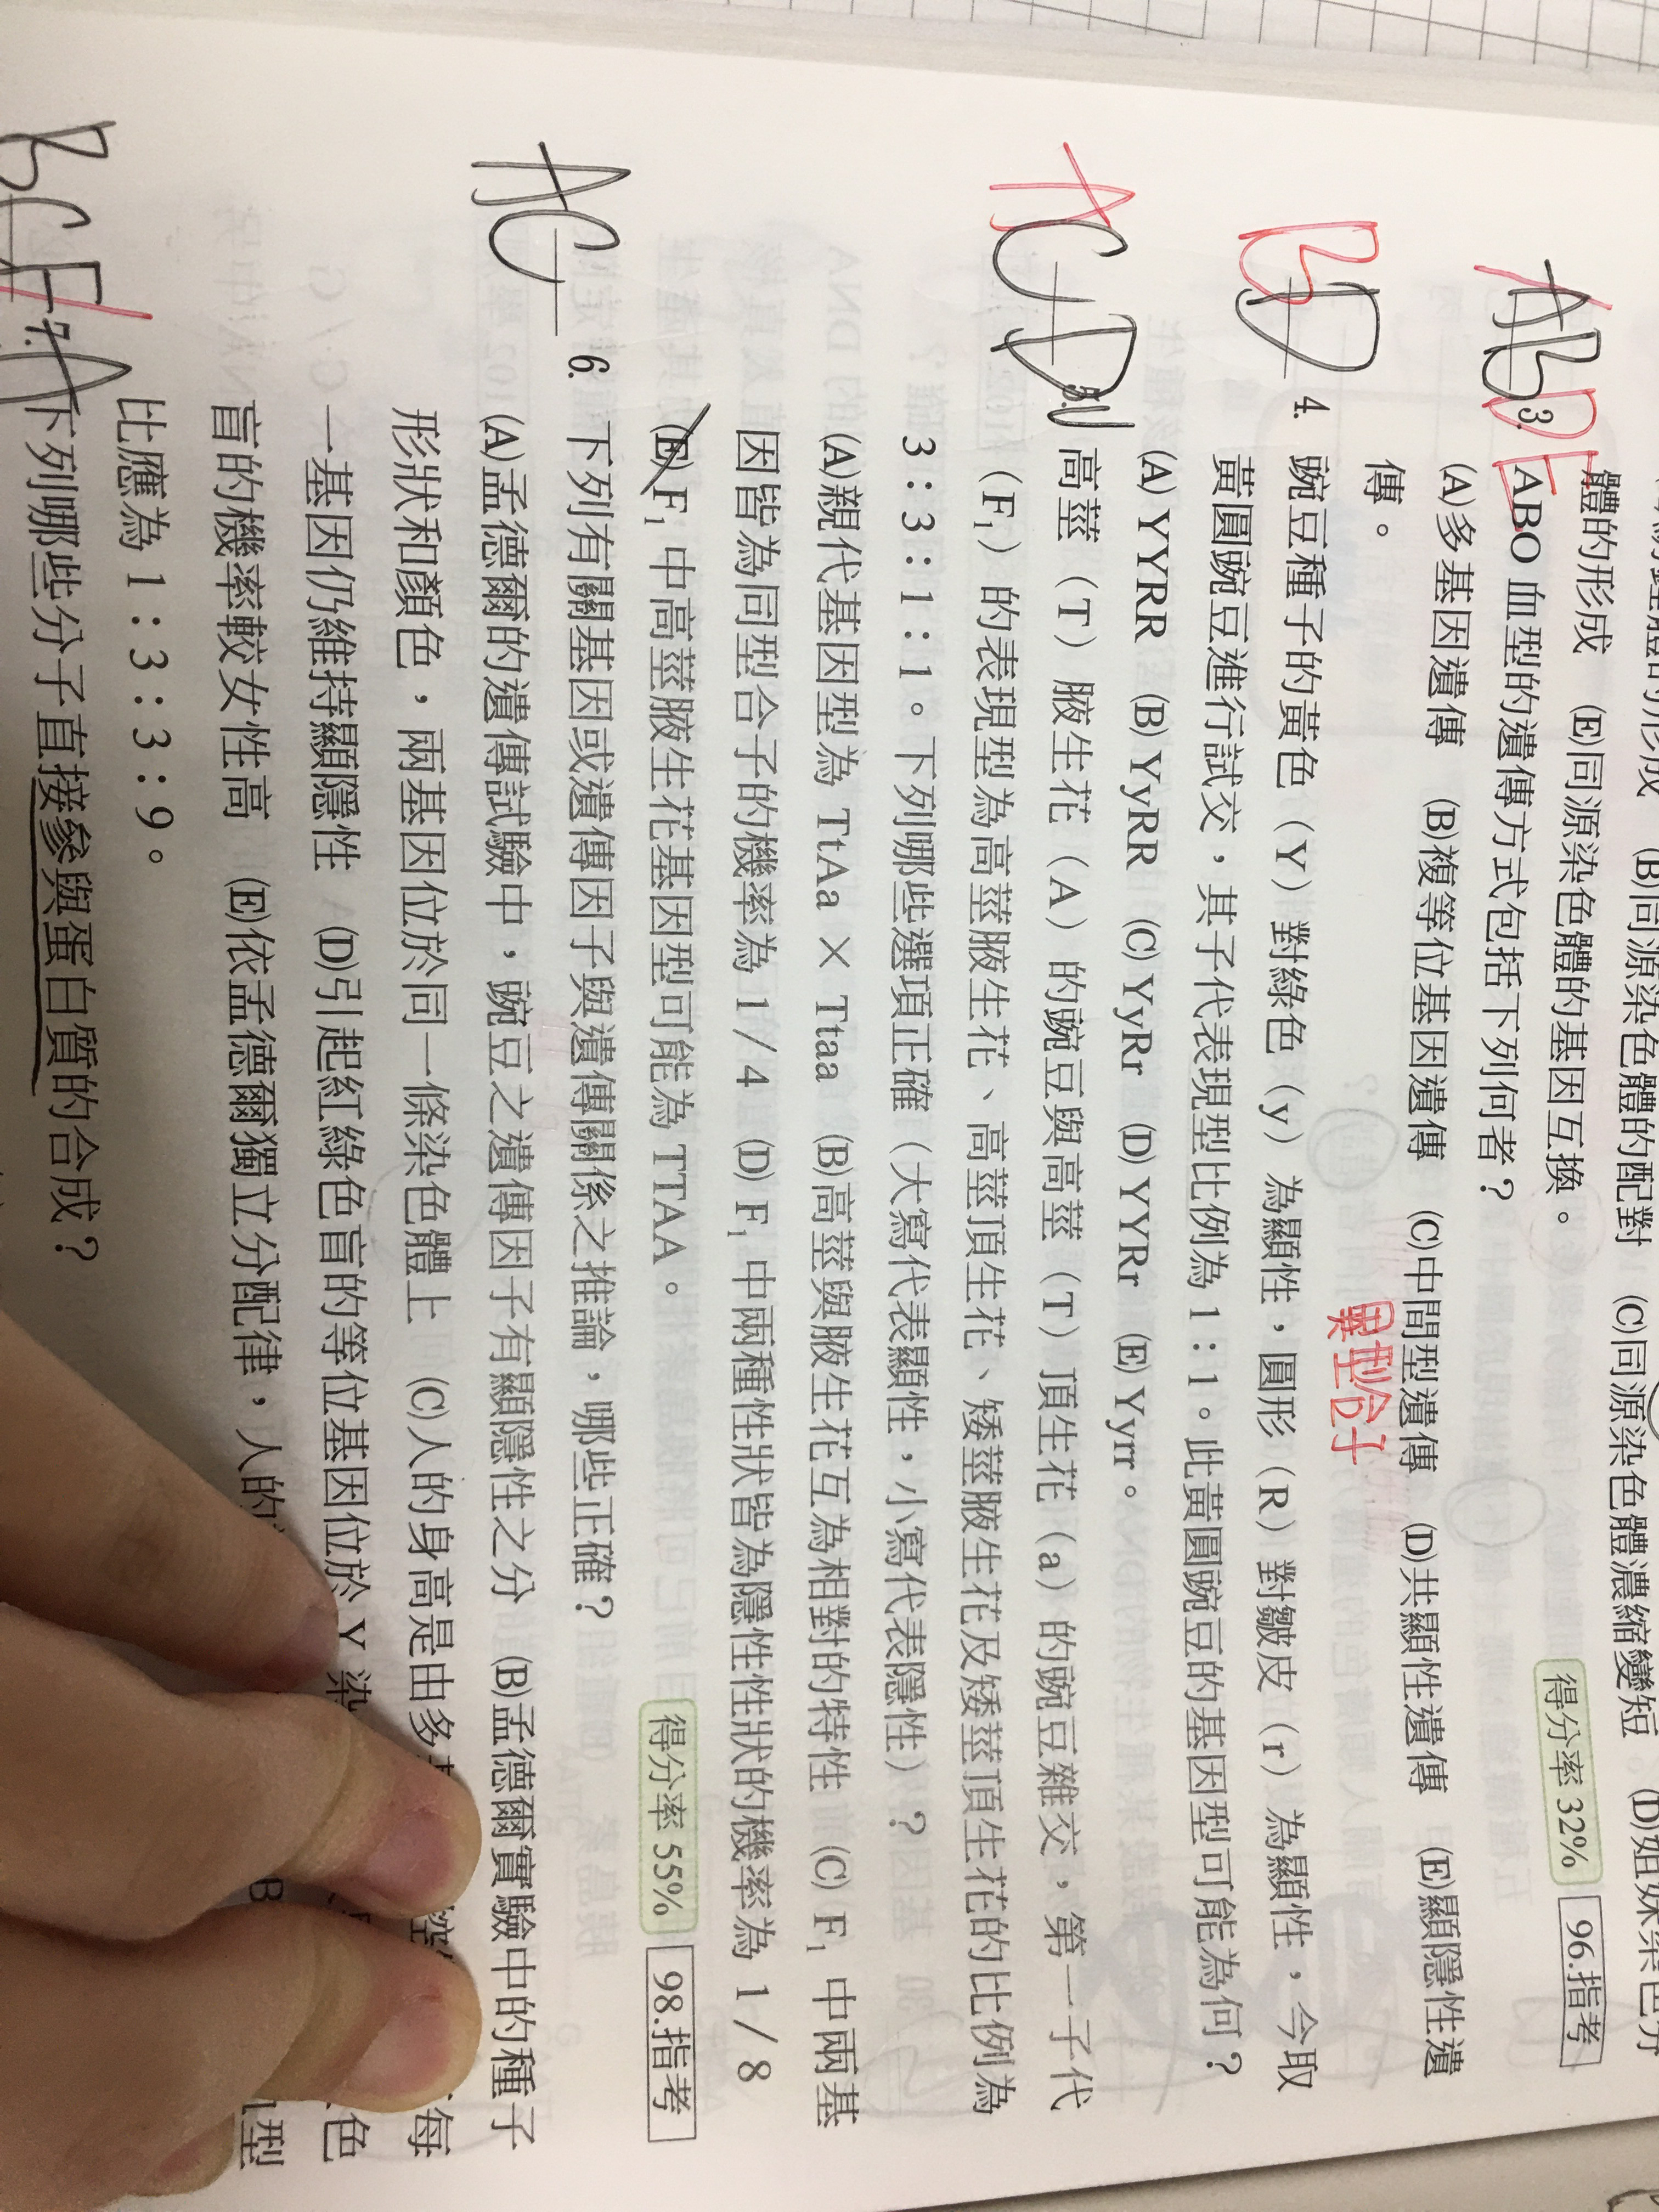 體的形成 (E)同源染色體的基因互換。 得分率 32% 96.指考
ABDE 3. ABO 血型的遺傳方式包括下列何者？
(A)多基因遺傳 (B)複等位基因遺傳 (C)中間型遺傳 (D)共顯性遺傳 (E)顯隱性遺
傳。
異型合子
BD 4. 豌豆種子的黃色（Y）對綠色（y）為顯性，圓形（R）對皺皮（r）為顯性，今取
黃圓豌豆進行試交，其子代表現型比例為 1：1。此黃圓豌豆的基因型可能為何？
(A) YYRR (B) YyRR (C) YyRr (D) YYRr (E) Yyrr。
ACD 5. 高莖（T）腋生花（A）的豌豆與高莖（T）頂生花（a）的豌豆雜交，第一子代
（F₁）的表現型為高莖腋生花、高莖頂生花、矮莖腋生花及矮莖頂生花的比例為
3：3：1：1。下列哪些選項正確（大寫代表顯性，小寫代表隱性）？
(A)親代基因型為 TtAa × Ttaa (B)高莖與腋生花互為相對的特性 (C) F₁ 中兩基
因皆為同型合子的機率為 1／4 (D) F₁ 中兩種性狀皆為隱性性狀的機率為 1／8
(E)F₁ 中高莖腋生花基因型可能為 TTAA。 得分率 55% 98.指考
AC 6. 下列有關基因或遺傳因子與遺傳關係之推論，哪些正確？
(A)孟德爾的遺傳試驗中，豌豆之遺傳因子有顯隱性之分 (B)孟德爾實驗中的種子
形狀和顏色，兩基因位於同一條染色體上 (C)人的身高是由多 每
一基因仍維持顯隱性 (D)引起紅綠色盲的等位基因位於 Y 染 色
盲的機率較女性高 (E)依孟德爾獨立分配律，人的 型
比應為 1：3：3：9。
7. 下列哪些分子直接參與蛋白質的合成？